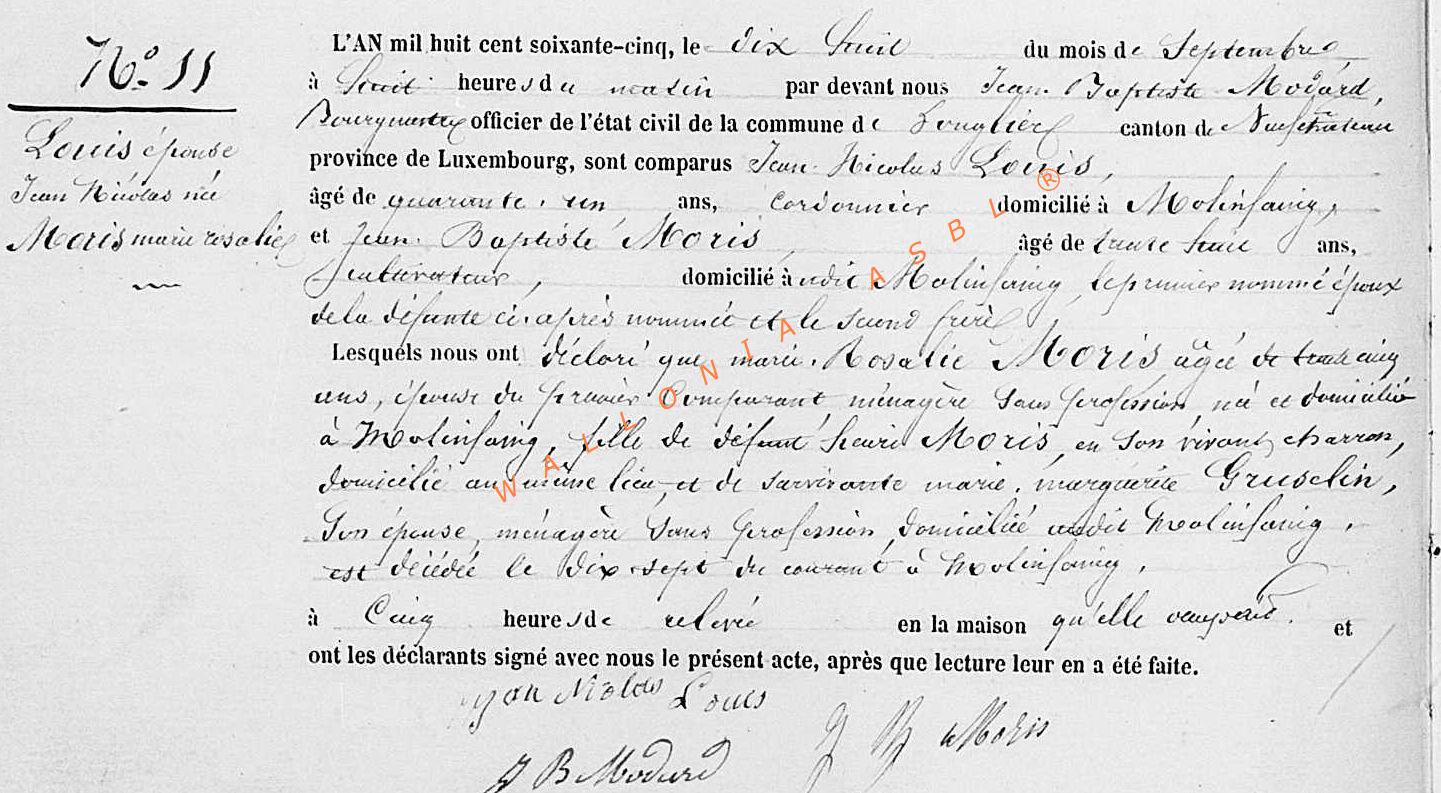 N° 11
Louis épouse
Jean Nicolas née
Moris marie rosalie
L'AN mil huit cent soixante-cinq, le dix huit du mois de Septembre,
à huit heures du matin par devant nous Jean-Baptiste Modard,
Bourgmestre officier de l'état civil de la commune de Longlier canton de Neufchateau
province de Luxembourg, sont comparus Jean-Nicolas Louis,
âgé de quarante-un ans, cordonnier domicilié à Molinfaing,
et Jean-Baptiste Moris, âgé de trente ans,
cultivateur, domicilié à udit Molinfaing, le premier nommé époux
de la défunte ci-après nommée et le second frère
Lesquels nous ont déclaré que marie-Rosalie Moris, agée de trente cinq
ans, épouse du premier Comparant, ménagère sans profession, née et domiciliée
à Molinfaing, fille de défunt henri Moris, en son vivant charron,
domicilié au même lieu, et de survivante marie-marguérite Gruselin,
son épouse, ménagère sans profession, domiciliée audit Molinfaing,
est décédée le dix-sept du courant à Molinfaing,
à Cinq heures de relevée en la maison qu'elle occupait. et
ont les déclarants signé avec nous le présent acte, après que lecture leur en a été faite.
Jean Nicolas Louis
J B Moris
J B Modard
WALLONIA ASBL ®